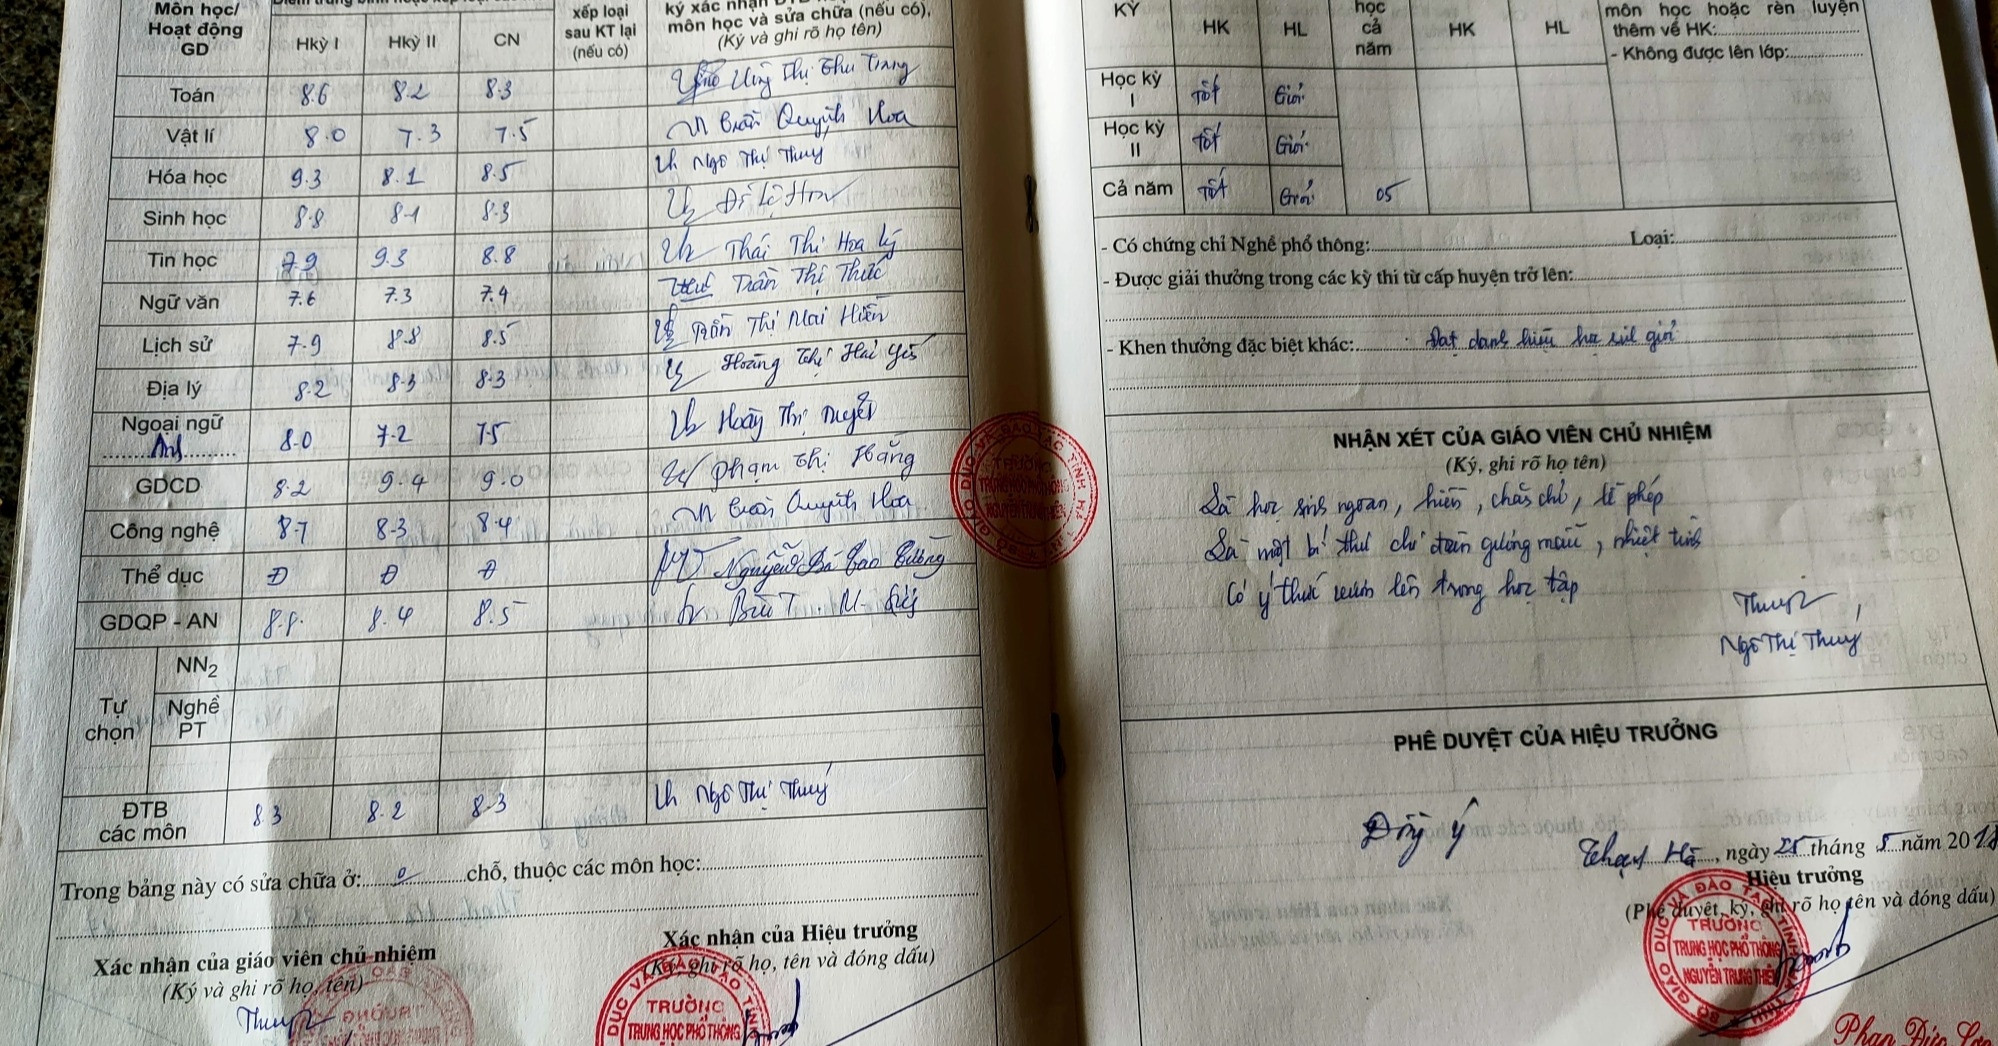 Môn học/
Hoạt động
GD
Hkỳ I Hkỳ II CN
xếp loại
sau KT lại
(nếu có)
ký xác nhận ĐTB
môn học và sửa chữa (nếu có),
(Ký và ghi rõ họ tên)
Toán 8.6 8.2 8.3 Thị Thu Trang
Vật lí 8.0 7.3 7.5 Trần Quỳnh Hoa
Hóa học 9.3 8.1 8.5 Ngô Thị Thuý
Sinh học 8.8 8.1 8.3
Tin học 7.9 9.3 8.8 Thái Thị Hoa Lý
Ngữ văn 7.6 7.3 7.4 Trần Thị Thức
Lịch sử 7.9 8.8 8.5 Trần Thị Mai Hiền
Địa lý 8.2 8.3 8.3 Hoàng Thị Hải Yến
Ngoại ngữ
Anh 8.0 7.2 7.5 Hoàng Thị Duyệt
GDCD 8.2 9.4 9.0 Phạm Thị Hằng
Công nghệ 8.7 8.3 8.4 Trần Quỳnh Hoa
Thể dục Đ Đ Đ Nguyễn Bá Cao Cường
GDQP - AN 8.8 8.4 8.5
Tự
chọn
NN2
Nghề
PT
ĐTB
các môn 8.3 8.2 8.3 Ngô Thị Thuý
Trong bảng này có sửa chữa ở: 0 chỗ, thuộc các môn học:
Xác nhận của giáo viên chủ nhiệm
(Ký và ghi rõ họ, tên)
Xác nhận của Hiệu trưởng
(Ký, ghi rõ họ, tên và đóng dấu)
TRƯỜNG
TRUNG HỌC PHỔ THÔNG
KỲ
HK HL
học
cả
năm
HK HL
môn học hoặc rèn luyện
thêm về HK:
- Không được lên lớp:
Học kỳ
I Tốt Giỏi
Học kỳ
II Tốt Giỏi
Cả năm Tốt Giỏi 05
- Có chứng chỉ Nghề phổ thông: Loại:
- Được giải thưởng trong các kỳ thi từ cấp huyện trở lên:
- Khen thưởng đặc biệt khác: Đạt danh hiệu học sinh giỏi
NHẬN XÉT CỦA GIÁO VIÊN CHỦ NHIỆM
(Ký, ghi rõ họ tên)
Là học sinh ngoan, hiền, chăm chỉ, lễ phép
Là một bí thư chi đoàn gương mẫu, nhiệt tình
Có ý thức vươn lên trong học tập
Ngô Thị Thuý
PHÊ DUYỆT CỦA HIỆU TRƯỞNG
Đồng ý
Thạch Hà, ngày 25 tháng 5 năm 2018
Hiệu trưởng
(Phê duyệt, ký, ghi rõ họ tên và đóng dấu)
TRƯỜNG
TRUNG HỌC PHỔ THÔNG
NGUYỄN TRUNG THIÊN
Phan Đức